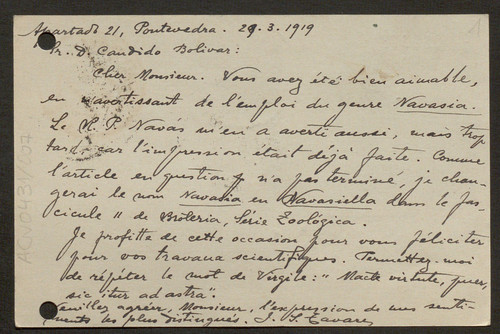 Apartado 21, Pontevedra. 29.3.1919
Pr. D. Candido Bolivar:
Cher Monsieur. Vous avez été bien aimable,
en m'avertissant de l'emploi du genre Navasia.
Le R. P. Navás m'en a averti aussi, mais trop
tard, car l'impression était déjà faite. Comme
l'article en question n'a pas terminé, je chan-
gerai le nom Navasia en Navasiella dans le fas-
cicule II de Broteria, Série Zoológica.
Je profitte de cette occasion pour vous féliciter
pour vos travaux scientifiques. Permettez-moi
de répéter le mot de Virgile: "Macte virtute, puer,
sic itur ad astra".
Veuillez agréer, Monsieur, l'expression de mes senti-
ments les plus distingués. J. S. Tavares
AC043/107